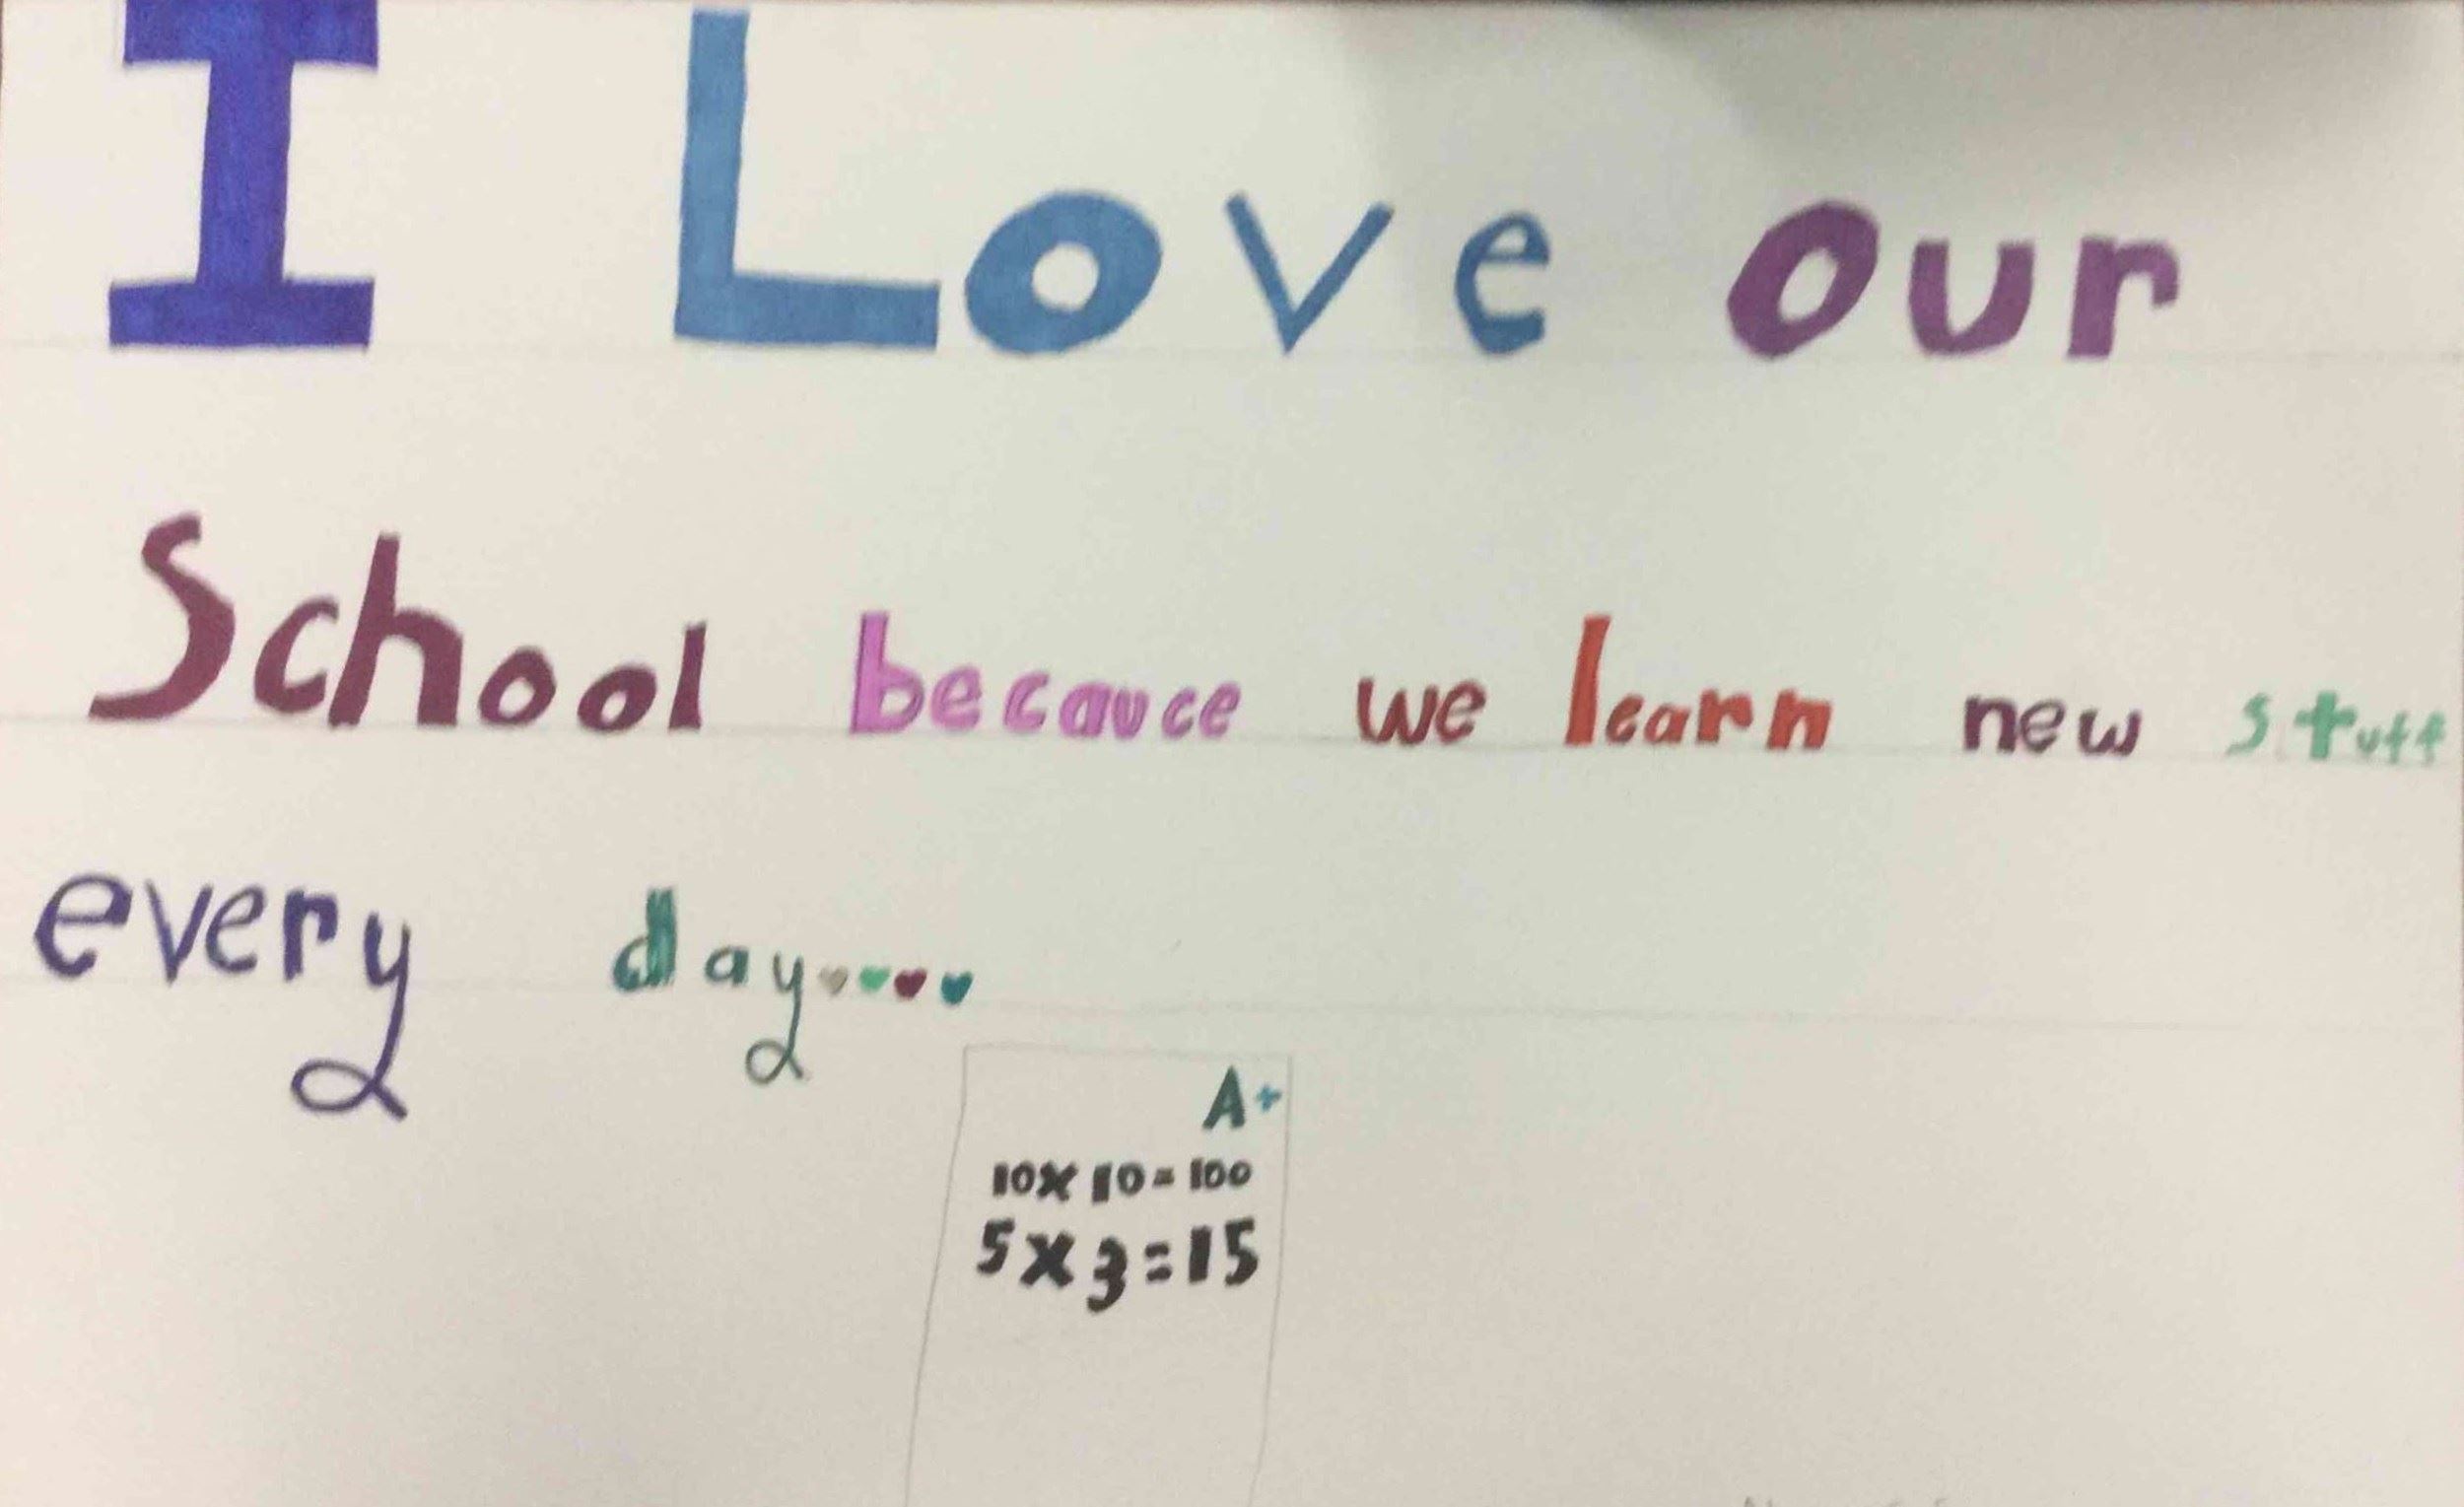 I Love our
School becauce we learn new stuff
every day
A+
10x10=100
5x3=15